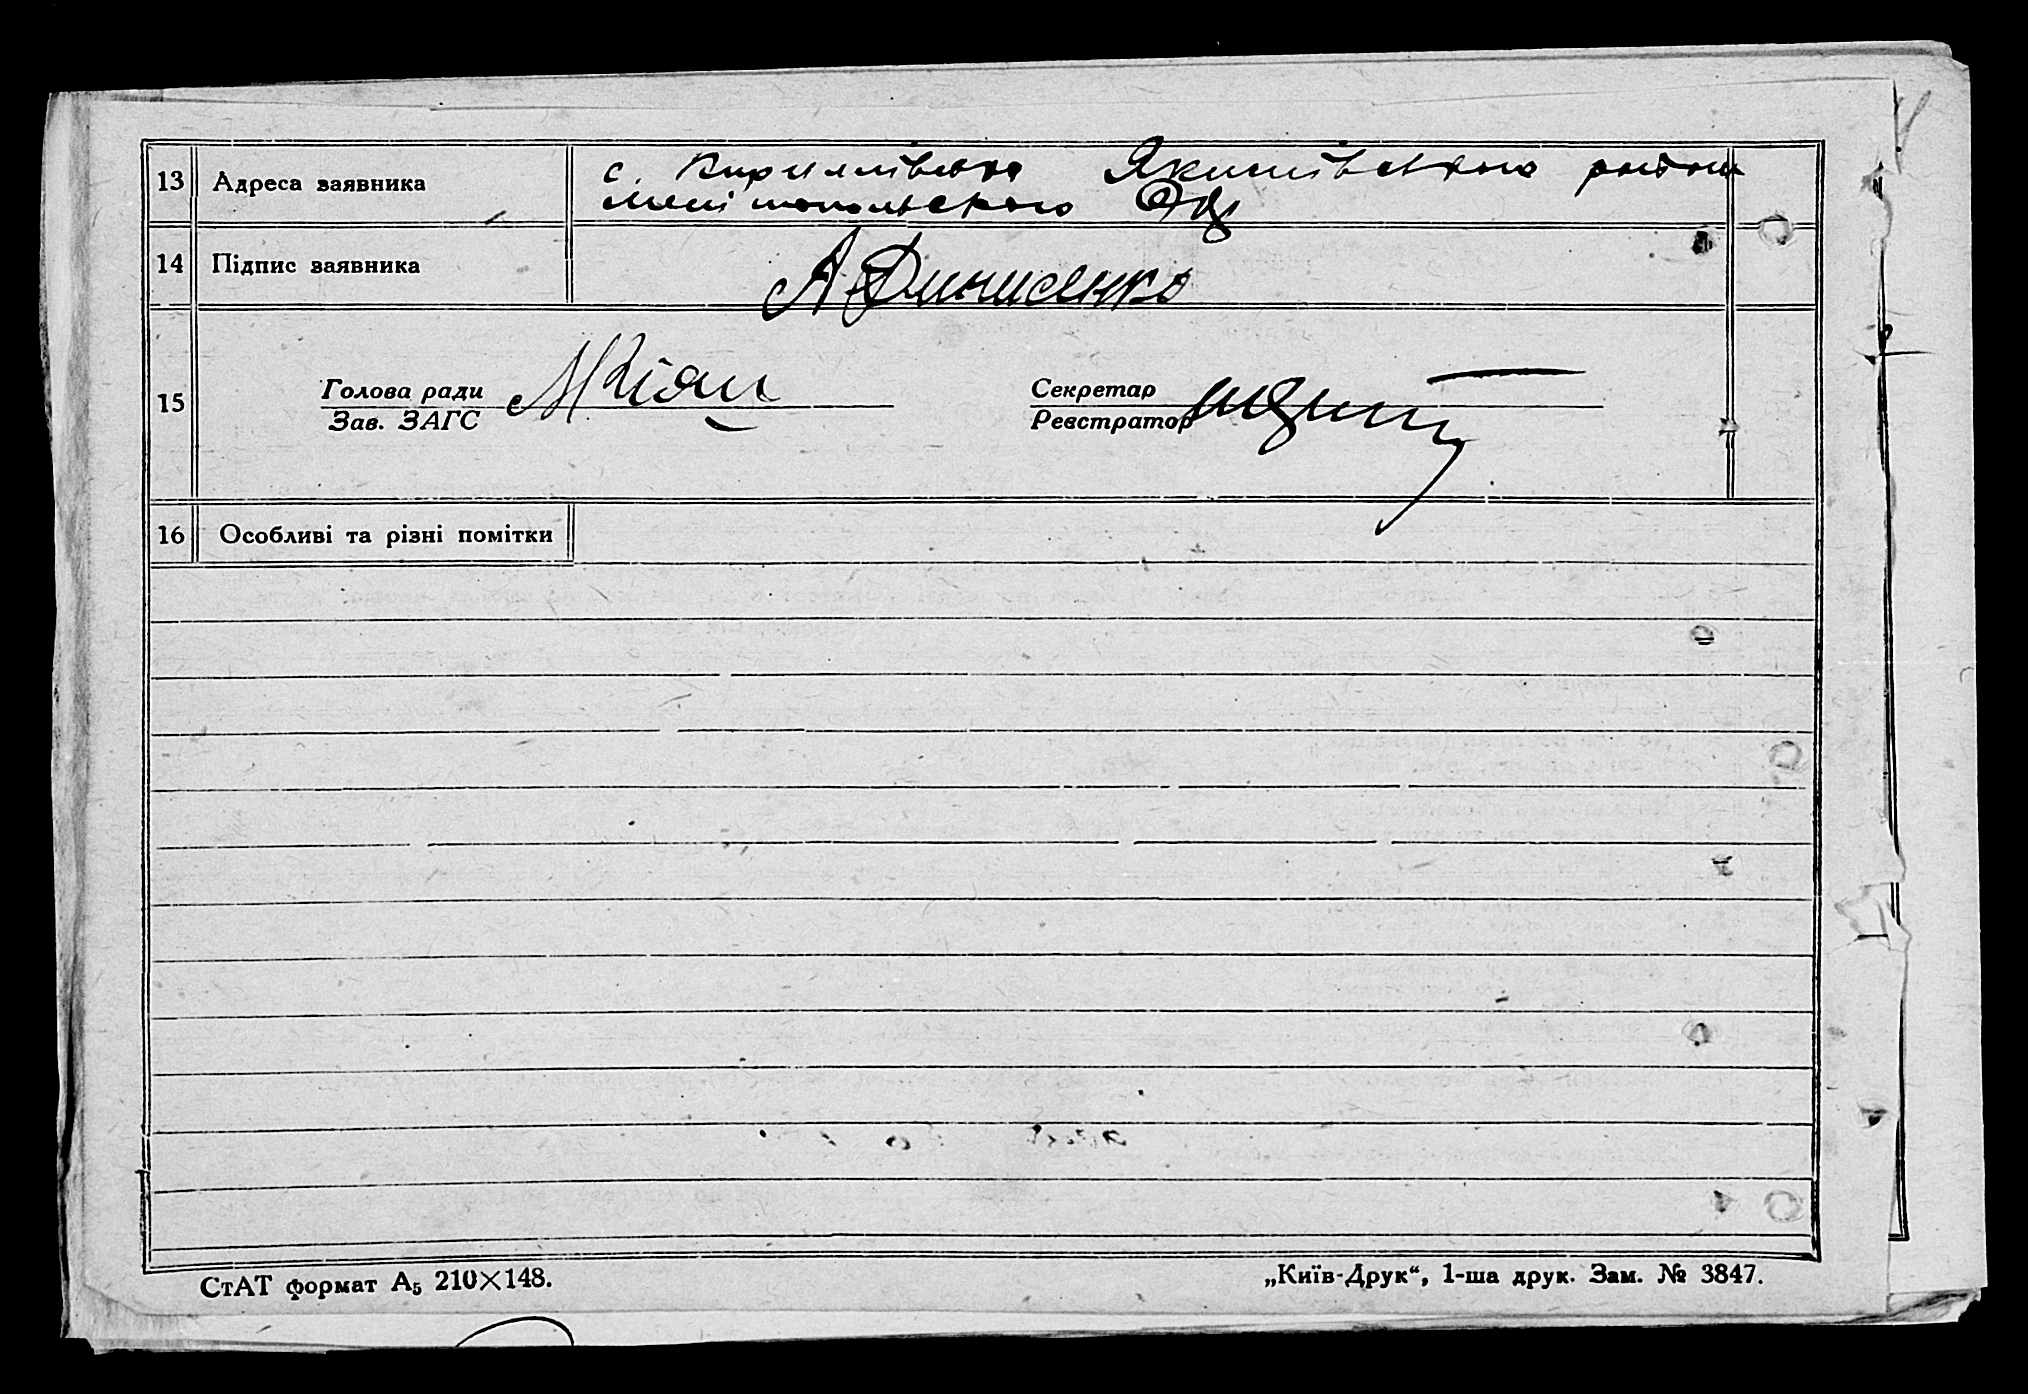 13 Адреса заявника с. Кирилівка Якимівського району
Мелітопольського
14 Підпис заявника А Динисенко
15 Голова ради Секретар
Зав. ЗАГС Реєстратор
16 Особливі та різні помітки
СтАТ формат А5 210×148. „Київ-Друк“, 1-ша друк. Зам. № 3847.